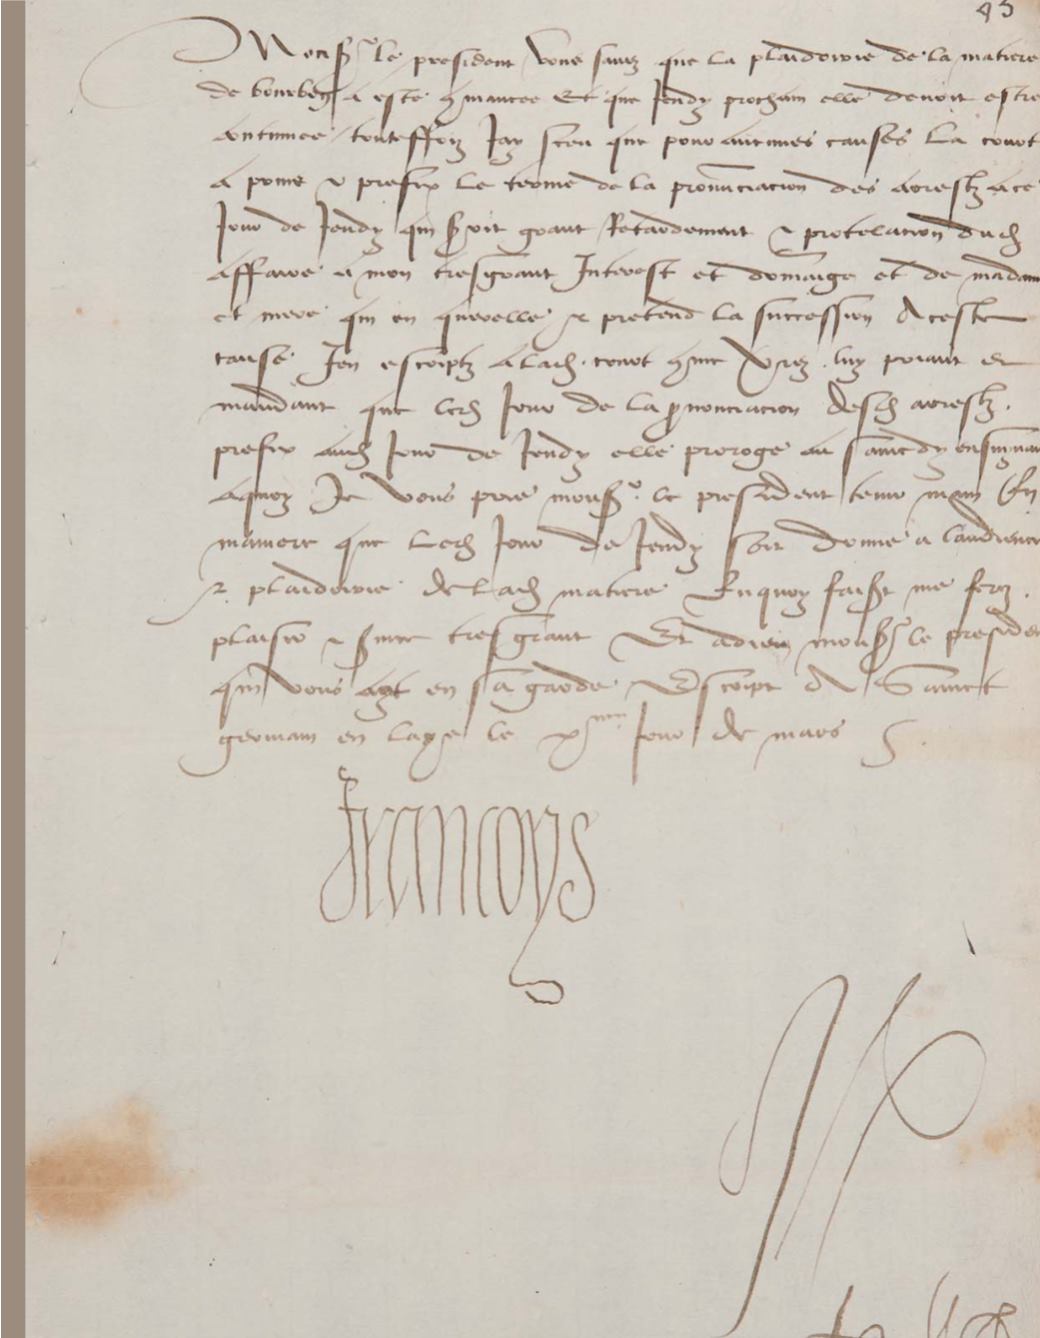 43
Mons.r le president Vous savez que la plaidoirie de la matiere
de bourbon a este commancee Et que Jeudy prochain elle devoit estre
continuee / touteffoiz Jay sceu que pour aucunes causes La court
a prins & prefix Le terme de la pronunciation des arrestz a ce
Jour de Jeudy qui seroit grant Retardement & protelacion dud
affaire a mon tresgrant Interest et dommaige et de madame
et mere qui en querelle & pretend La succession A ceste
cause Jen escriptz a lad. court comme Verrez luy priant et
mandant que led Jour de La prononciacion desd arrestz
prefix aud Jour de Jeudy elle proroge au samedy ensuivant
a quoy Je Vous prie mons.r le president tenir main En
maniere que Led Jour de Jeudy soit donne a laudience
& plaidoirie de Lad matiere En quoy faisant me ferez
plaisir & service tresgrant Et adieu mons.r le president
qui Vous ayt en sa garde Escript A Sainct
germain en Laye le Jour de mars
Francoys